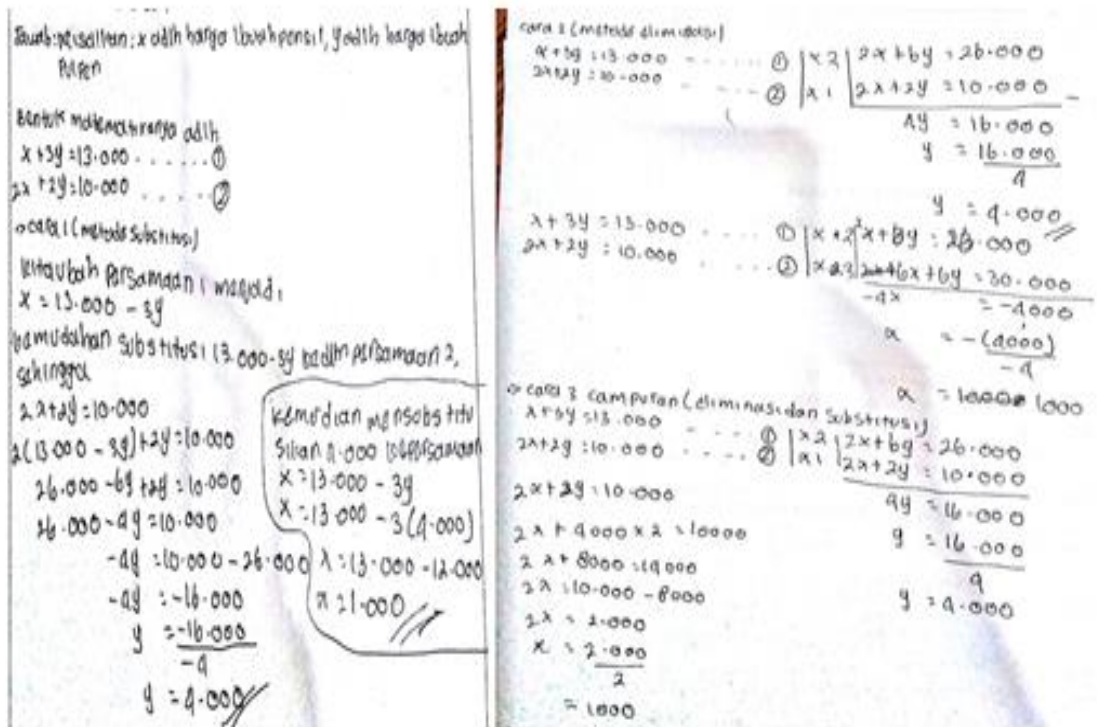 Jawab: misalkan: x adlh harga 1 buah pensil, y adlh harga 1 buah
Pulpen
Bentuk matematikanya adlh
x + 3y = 13.000 ...... ①
2x + 2y = 10.000 ..... ②
cara 1 (metode substitusi)
kita ubah persamaan 1 menjadi
x = 13.000 - 3y
kemudahan substitusi 13.000-3y persamaan 2,
sehingga
2x+2y = 10.000
2(13.000 - 3y) + 2y = 10.000
26.000 - 6y + 2y = 10.000
26.000 - 4y = 10.000
-4y = 10.000 - 26.000
-4y = -16.000
y = -16.000
-4
y = 4.000
kemudian mensubstitu
sikan 4.000 persamaan
x = 13.000 - 3y
x = 13.000 - 3(4.000)
x = 13.000 - 12.000
x = 1.000
cara 2 (metode eliminasi)
x + 3y = 13.000 ...... ① | x2 | 2x + 6y = 26.000
2x+2y = 10.000 ...... ② | x1 | 2x + 2y = 10.000 -
4y = 16.000
y = 16.000
4
y = 4.000
x + 3y = 13.000 ..... ① | x 2 2x + 6y = 26.000
2x + 2y = 10.000 ..... ② | x 3 6x + 6y = 30.000
-4x = -4000
x = -(4000)
-4
x = 1000
cara 3 campuran (eliminasi dan substitusi)
x + 3y = 13.000 ...... ① | x2 | 2x + 6y = 26.000
2x + 2y = 10.000 ..... ② | x1 | 2x + 2y = 10.000
4y = 16.000
y = 16.000
4
y = 4.000
2x + 2y = 10.000
2x + 4000 x 2 = 10000
2x + 8000 = 10000
2x = 10.000 - 8000
2x = 2.000
x = 2.000
2
= 1000